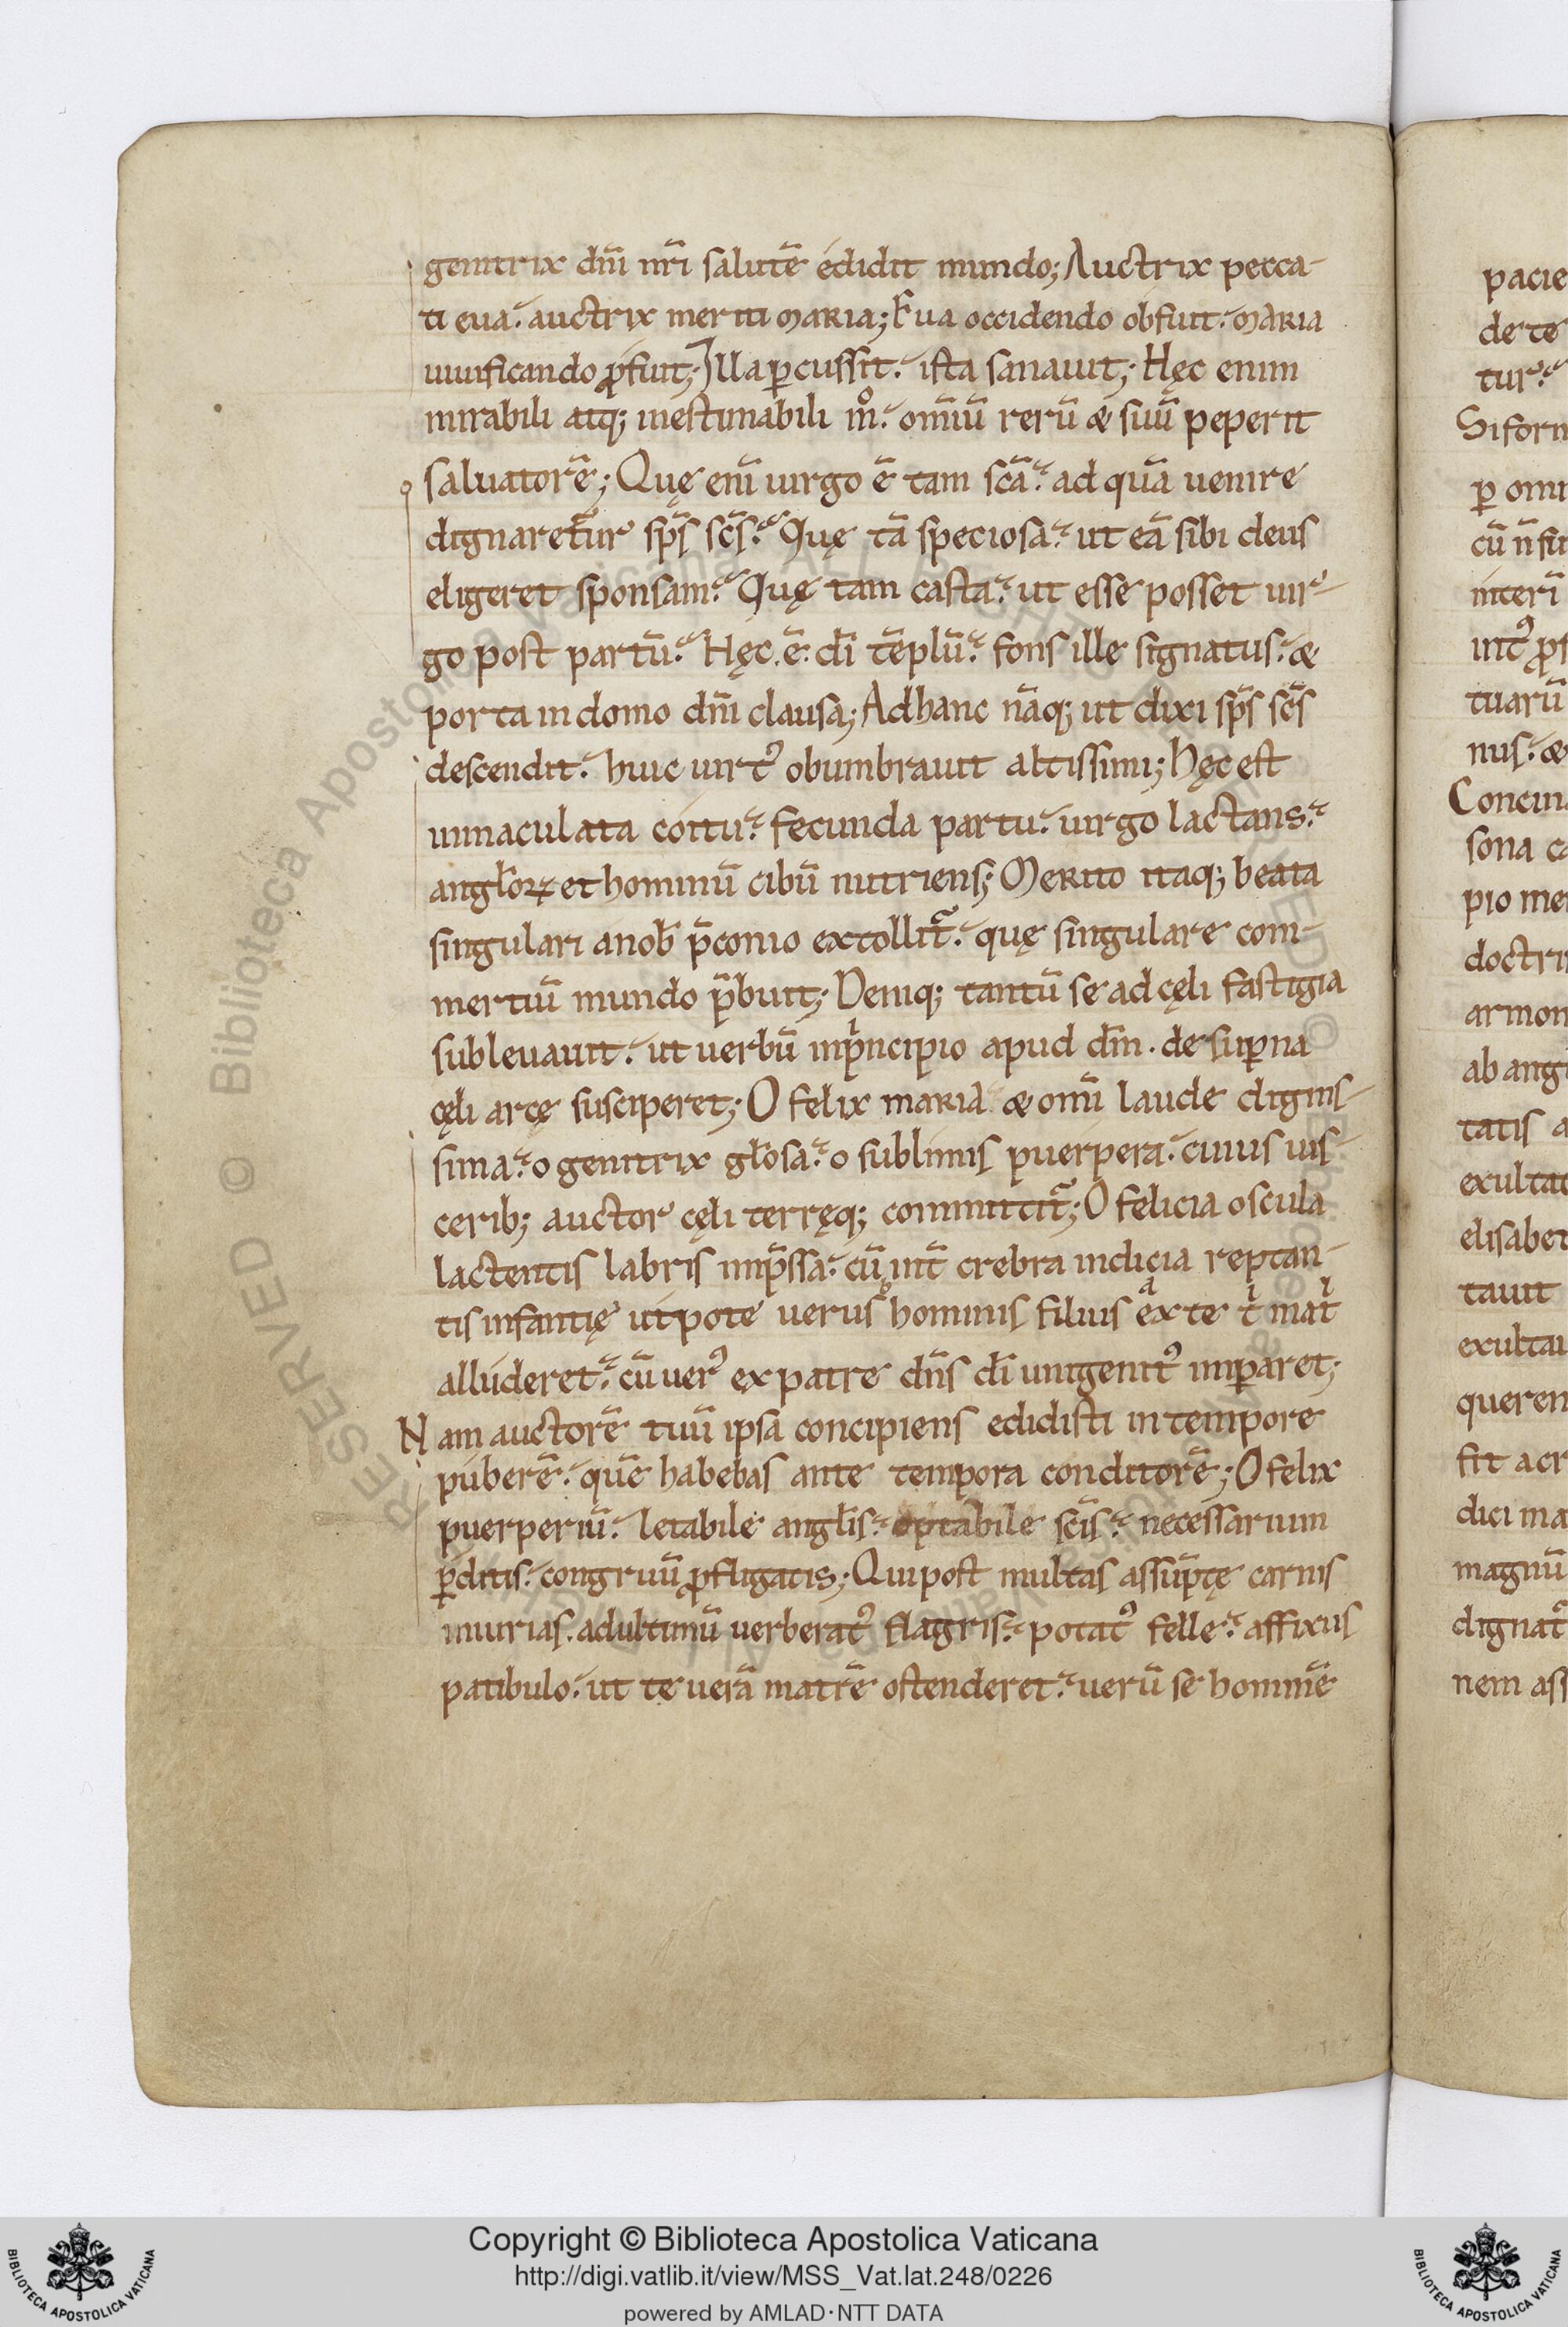 genitrix dn̄i nr̄i salutē edidit mundo; Auctrix pecca-
ti eua. auctrix meriti maria; Eua occidendo obfuit. maria
uiuificando ꝓfuit; Illa ꝑcussit. ista sanauit; Hęc enim
mirabili atq; inestimabili m̊. om̄iū rerū & suū peperit
saluatorē; Quę eni̅ uirgo ē tam sc̄a. ad quā uenire
dignaret̄ur sp̄s sc̄s. Quę tā speciosa. ut eā sibi deus
eligeret sponsam. Quę tam casta. ut esse posset uir-
go post partū. Hęc. ē. dī tēplū. fons ille signatus. &
porta in domo dn̄i clausa; Ad hanc nāq; ut dixi sp̄s sc̄s
descendit. huic uirtꝰ obumbrauit altissimi; Hęc est
inmaculata coitu. fecunda partu. uirgo lactans.
angl̄oꝝ et hominū cibū nutriens; Merito itaq; beata
singulari a nob̄ p̄conio extollit̄. quę singulare com-
mertiū mundo p̄buit; Deniq; tantū se ad cęli fastigia
subleuauit. ut uerbū inpͥncipio apud dm̄. de suꝑna
cęli arce susciperet; O felix maria & omī laude dignis-
sima. o genitrix gl̄osa. o sublimis puerpera. cuius uis-
cerib; auctor cęli terręq; committit̄; O felicia oscula
lactentis labris imp̄ssa. cū int̄ crebra indicia reptan-
tis infantię utpote uerus hominis filius ex te tͥ matͥ
alluderet. cū uerꝰ ex patre dn̄s dī unigenitꝰ imꝑaret;
Nam auctorē tuū ipsa concipiens edidisti in tempore
puberē. quē habebas ante tempora conditorē; O felix
puerperiū. letabile angl̄is. optabile sc̄is. necessarium
ꝑditis. congruū ꝓfligatis; Qui post multas assūptę carnis
iniurias. ad ultimū uerberatꝰ flagris. potatꝰ felle. affixus
patibulo. ut te uerā matrē ostenderet. uerū se hominē
pacie
de te
tur.
Si forn
ꝑ omn
cū n̄ fu
interī
intꝰ ꝓs
tuarū
nus. &
Concin
sona ca
pio me
doctri
armon
ab ang
tatis a
exultat
elisabet
tauit
exultau
queren
fit acr
dici ma
magnū
dignatꝰ
nem ass
RESERVED © Biblioteca Apostolica Vaticana
Copyright © Biblioteca Apostolica Vaticana
http://digi.vatlib.it/view/MSS_Vat.lat.248/0226
powered by AMLAD·NTT DATA
BIBLIOTECA APOSTOLICA VATICANA
BIBLIOTECA APOSTOLICA VATICANA